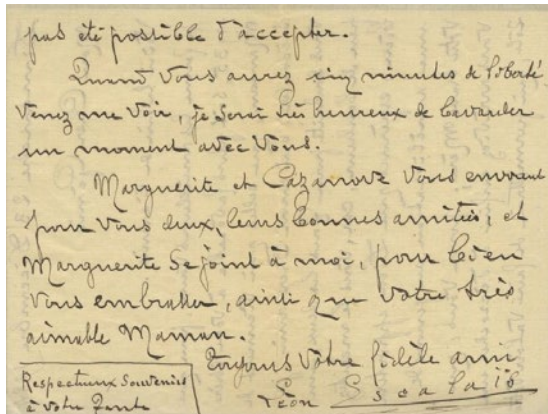 pas été possible d'accepter.
Quand vous aurez cinq minutes de liberté
venez me voir, je serai très heureux de bavarder
un moment avec vous.
Marguerite et Cazanove vous envoient
pour vous deux, leurs bonnes amitiés, et
Marguerite se joint à moi, pour bien
vous embrasser, ainsi que votre très
aimable Maman.
Toujours votre fidèle ami
Léon
Respectueux Souvenirs
à votre Tante